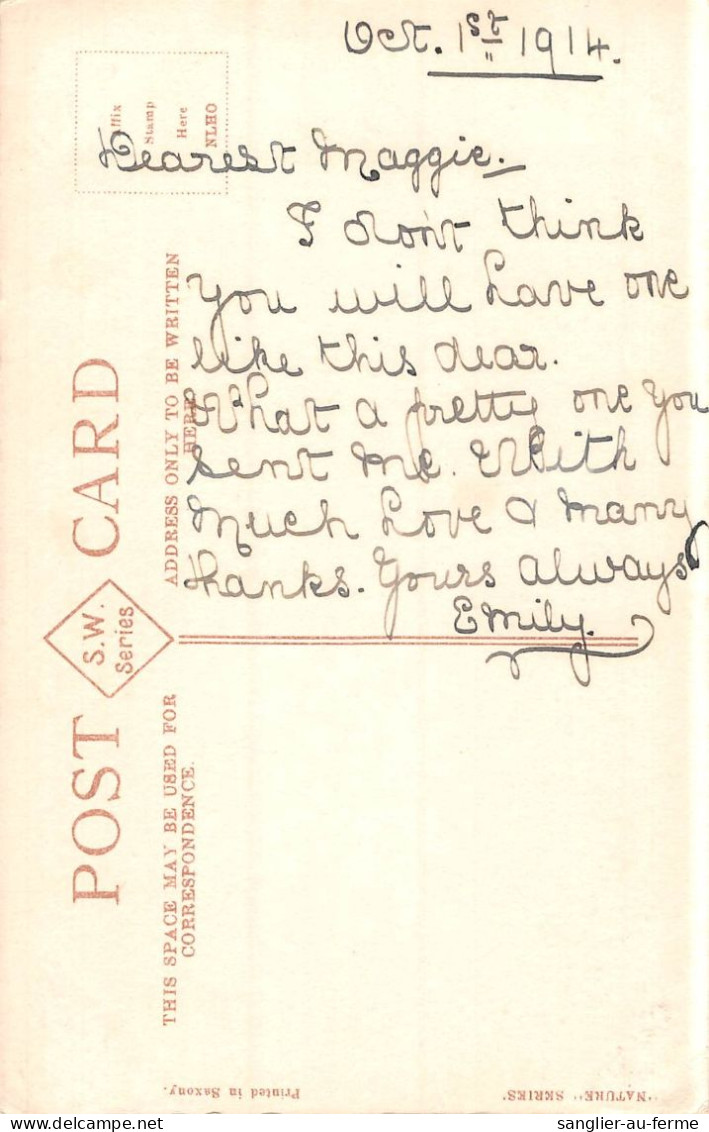 Oct. 1st 1914.
Affix
Stamp
Here
NLHO
Dearest Maggie.
I don't think
you will have one
like this dear.
What a pretty one you
sent me. With
Much Love & many
thanks. Yours always
Emily.
POST CARD
S.W.
Series
ADDRESS ONLY TO BE WRITTEN
HERE
THIS SPACE MAY BE USED FOR
CORRESPONDENCE.
Printed in Saxony.
"NATURE" SERIES.
sanglier-au-ferme